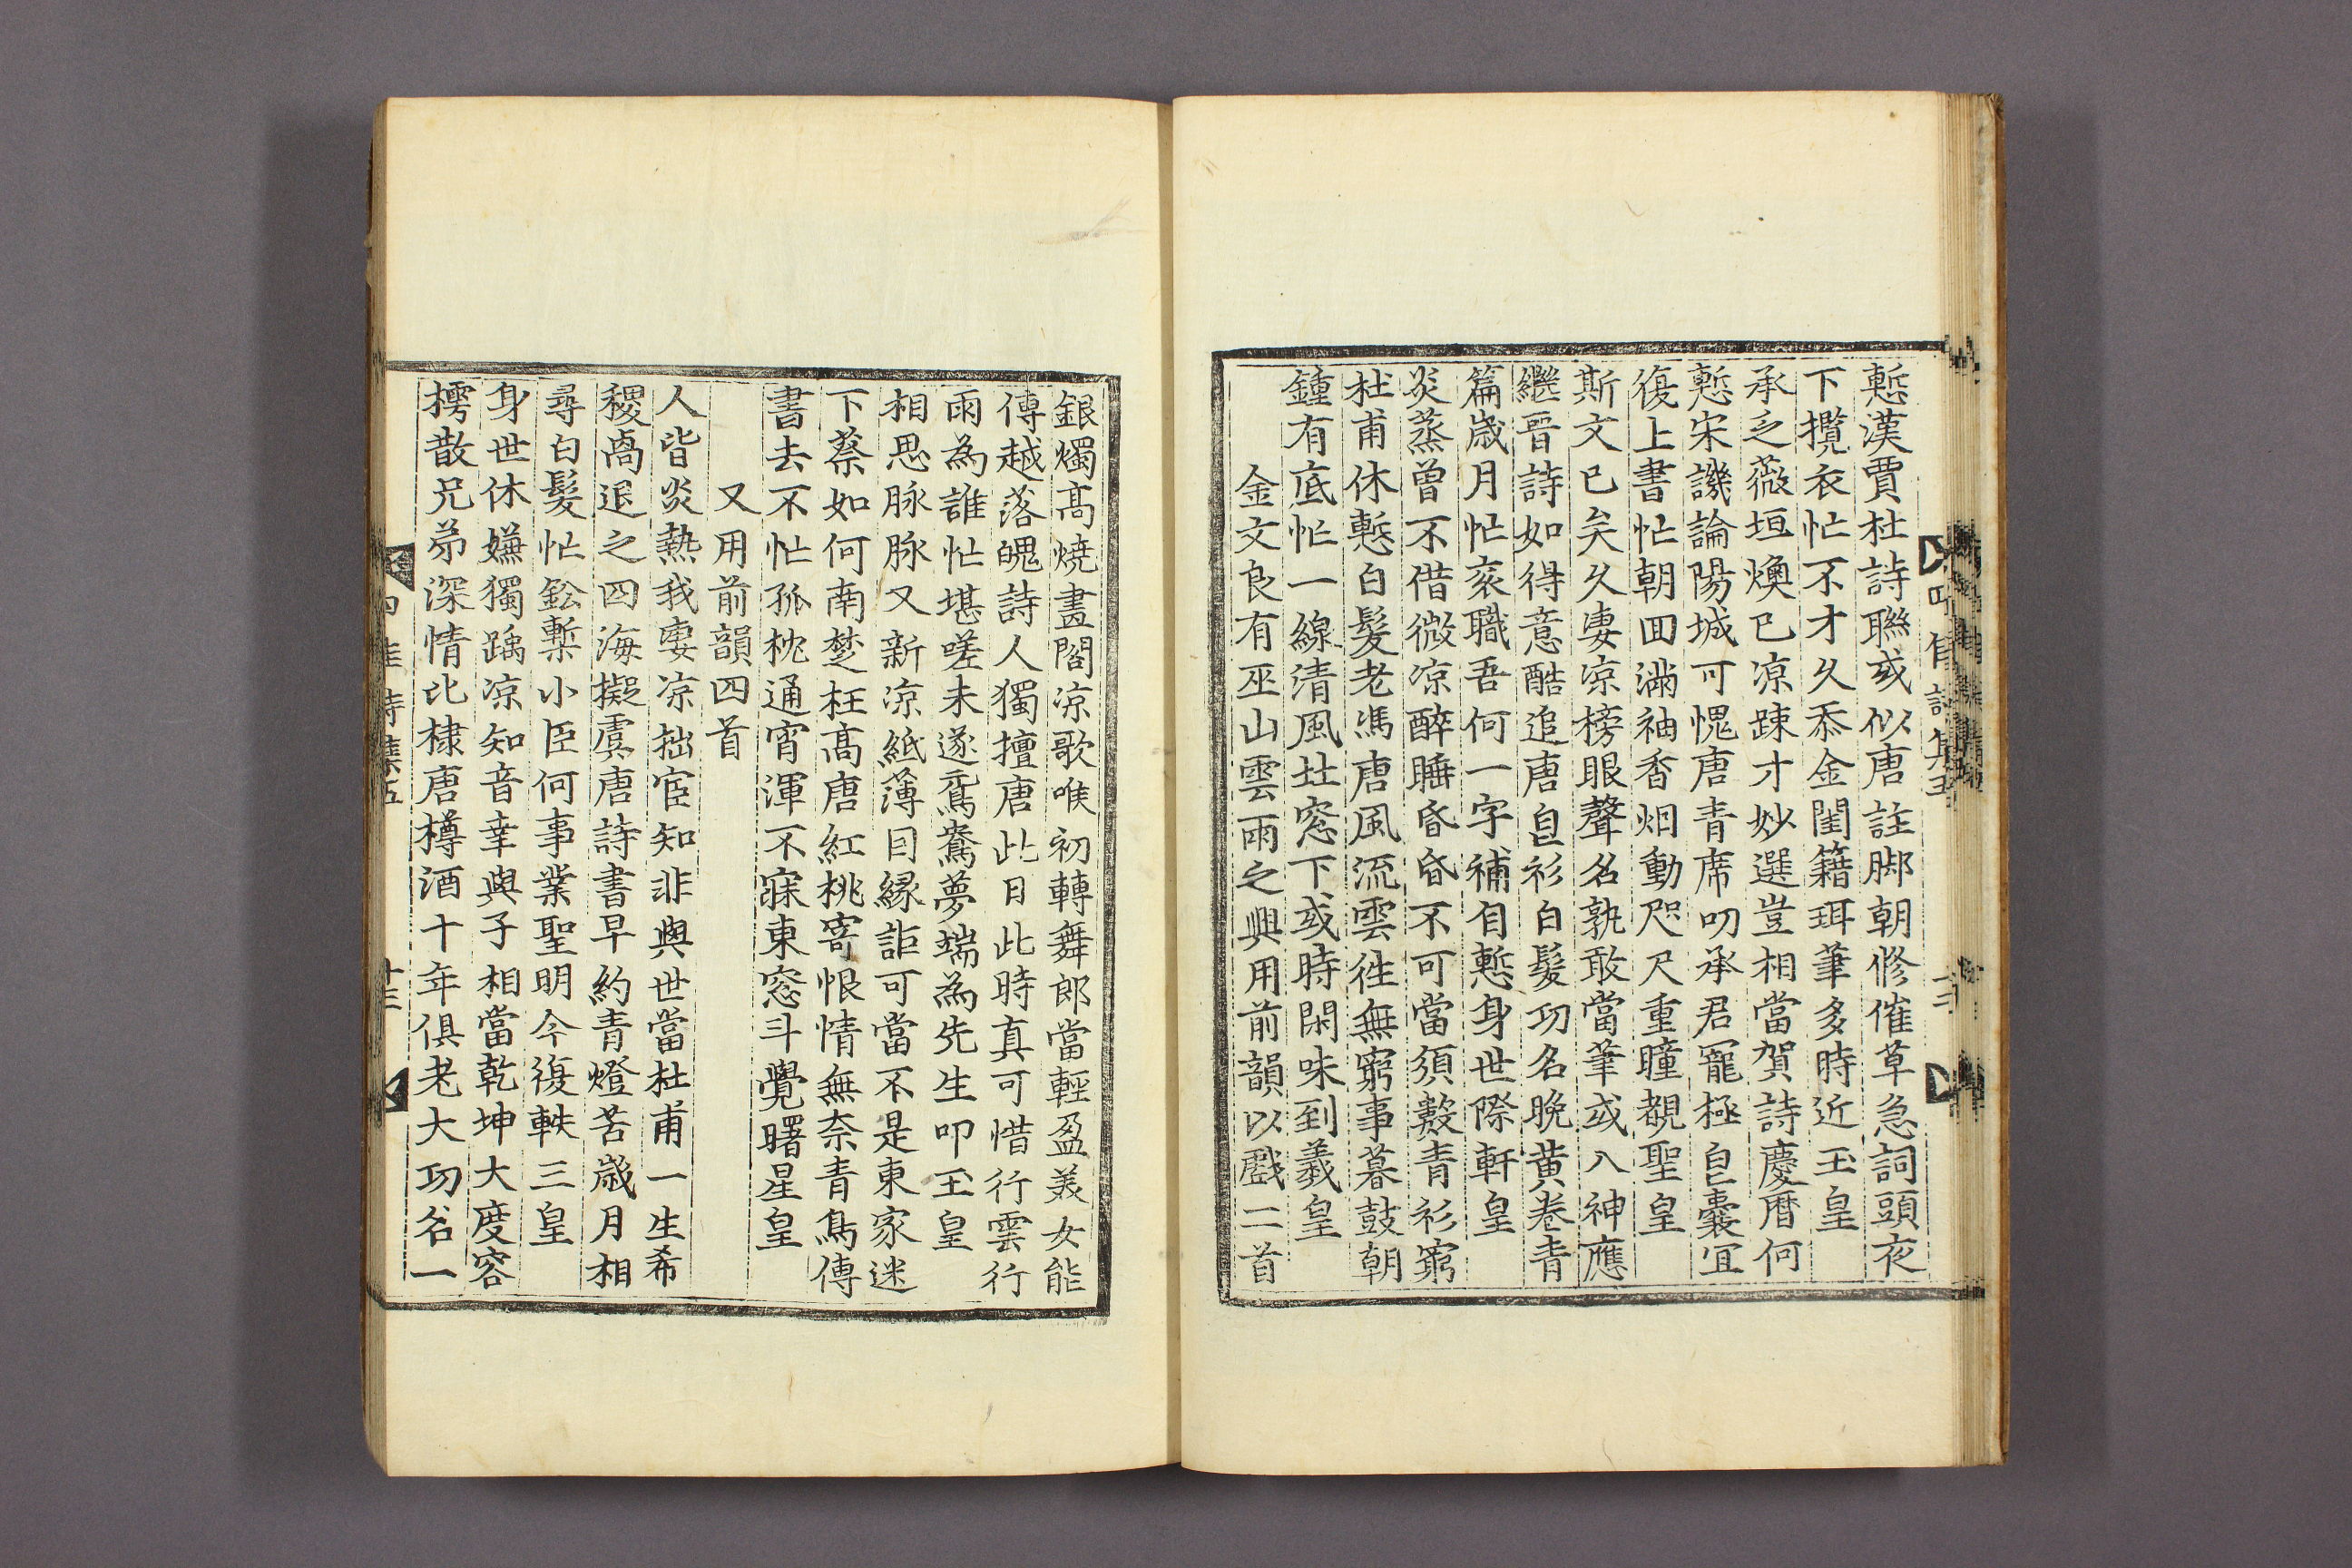 慙漢賈杜詩聯或似唐註脚朝修催草急詞頭夜
下攬衣忙不才久忝金閨籍珥筆多時近玉皇
承乏薇垣煥已凉踈才妙選豈相當賀詩慶曆何
慙宋譏論陽城可愧唐青席叨承君寵極皂囊冝
復上書忙朝回滿袖香烟動咫尺重瞳覩聖皇
斯文已矣久凄凉榜眼聲名孰敢當筆或八神應
繼晉詩如得意酷追唐皂衫白髮功名晚黄卷青
篇歲月忙衮職吾何一字補自慙身世際軒皇
炎蒸曾不借微凉醉睡昏昏不可當須數青衫窮
杜甫休慙白髮老馮唐風流雲徃無窮事暮鼓朝
鍾有底忙一線清風北窓下或時閑味到羲皇
金文良有巫山雲雨之興用前韻以戲二首
銀燭髙燒畫閣凉歌喉初轉舞郎當輕盈羙女能
傳越落魄詩人獨擅唐此日此時真可惜行雲行
雨為誰忙堪嗟未遂鴛鴦夢端為先生叩玉皇
相思脉脉又新凉紙薄因緣詎可當不是東家迷
下蔡如何南楚枉髙唐紅桃寄恨情無奈青鳥傳
書去不忙孤枕通宵渾不寐東窓斗覺曙星皇
又用前韻四首
人皆炎熱我凄凉拙宦知非與世當杜甫一生希
稷卨退之四海擬虞唐詩書早約青燈苦歲月相
尋白髮忙鈆槧小臣何事業聖明今復軼三皇
身世休嫌獨踽凉知音幸與子相當乾坤大度容
樗散兄弟深情比棣唐樽酒十年俱老大功名一